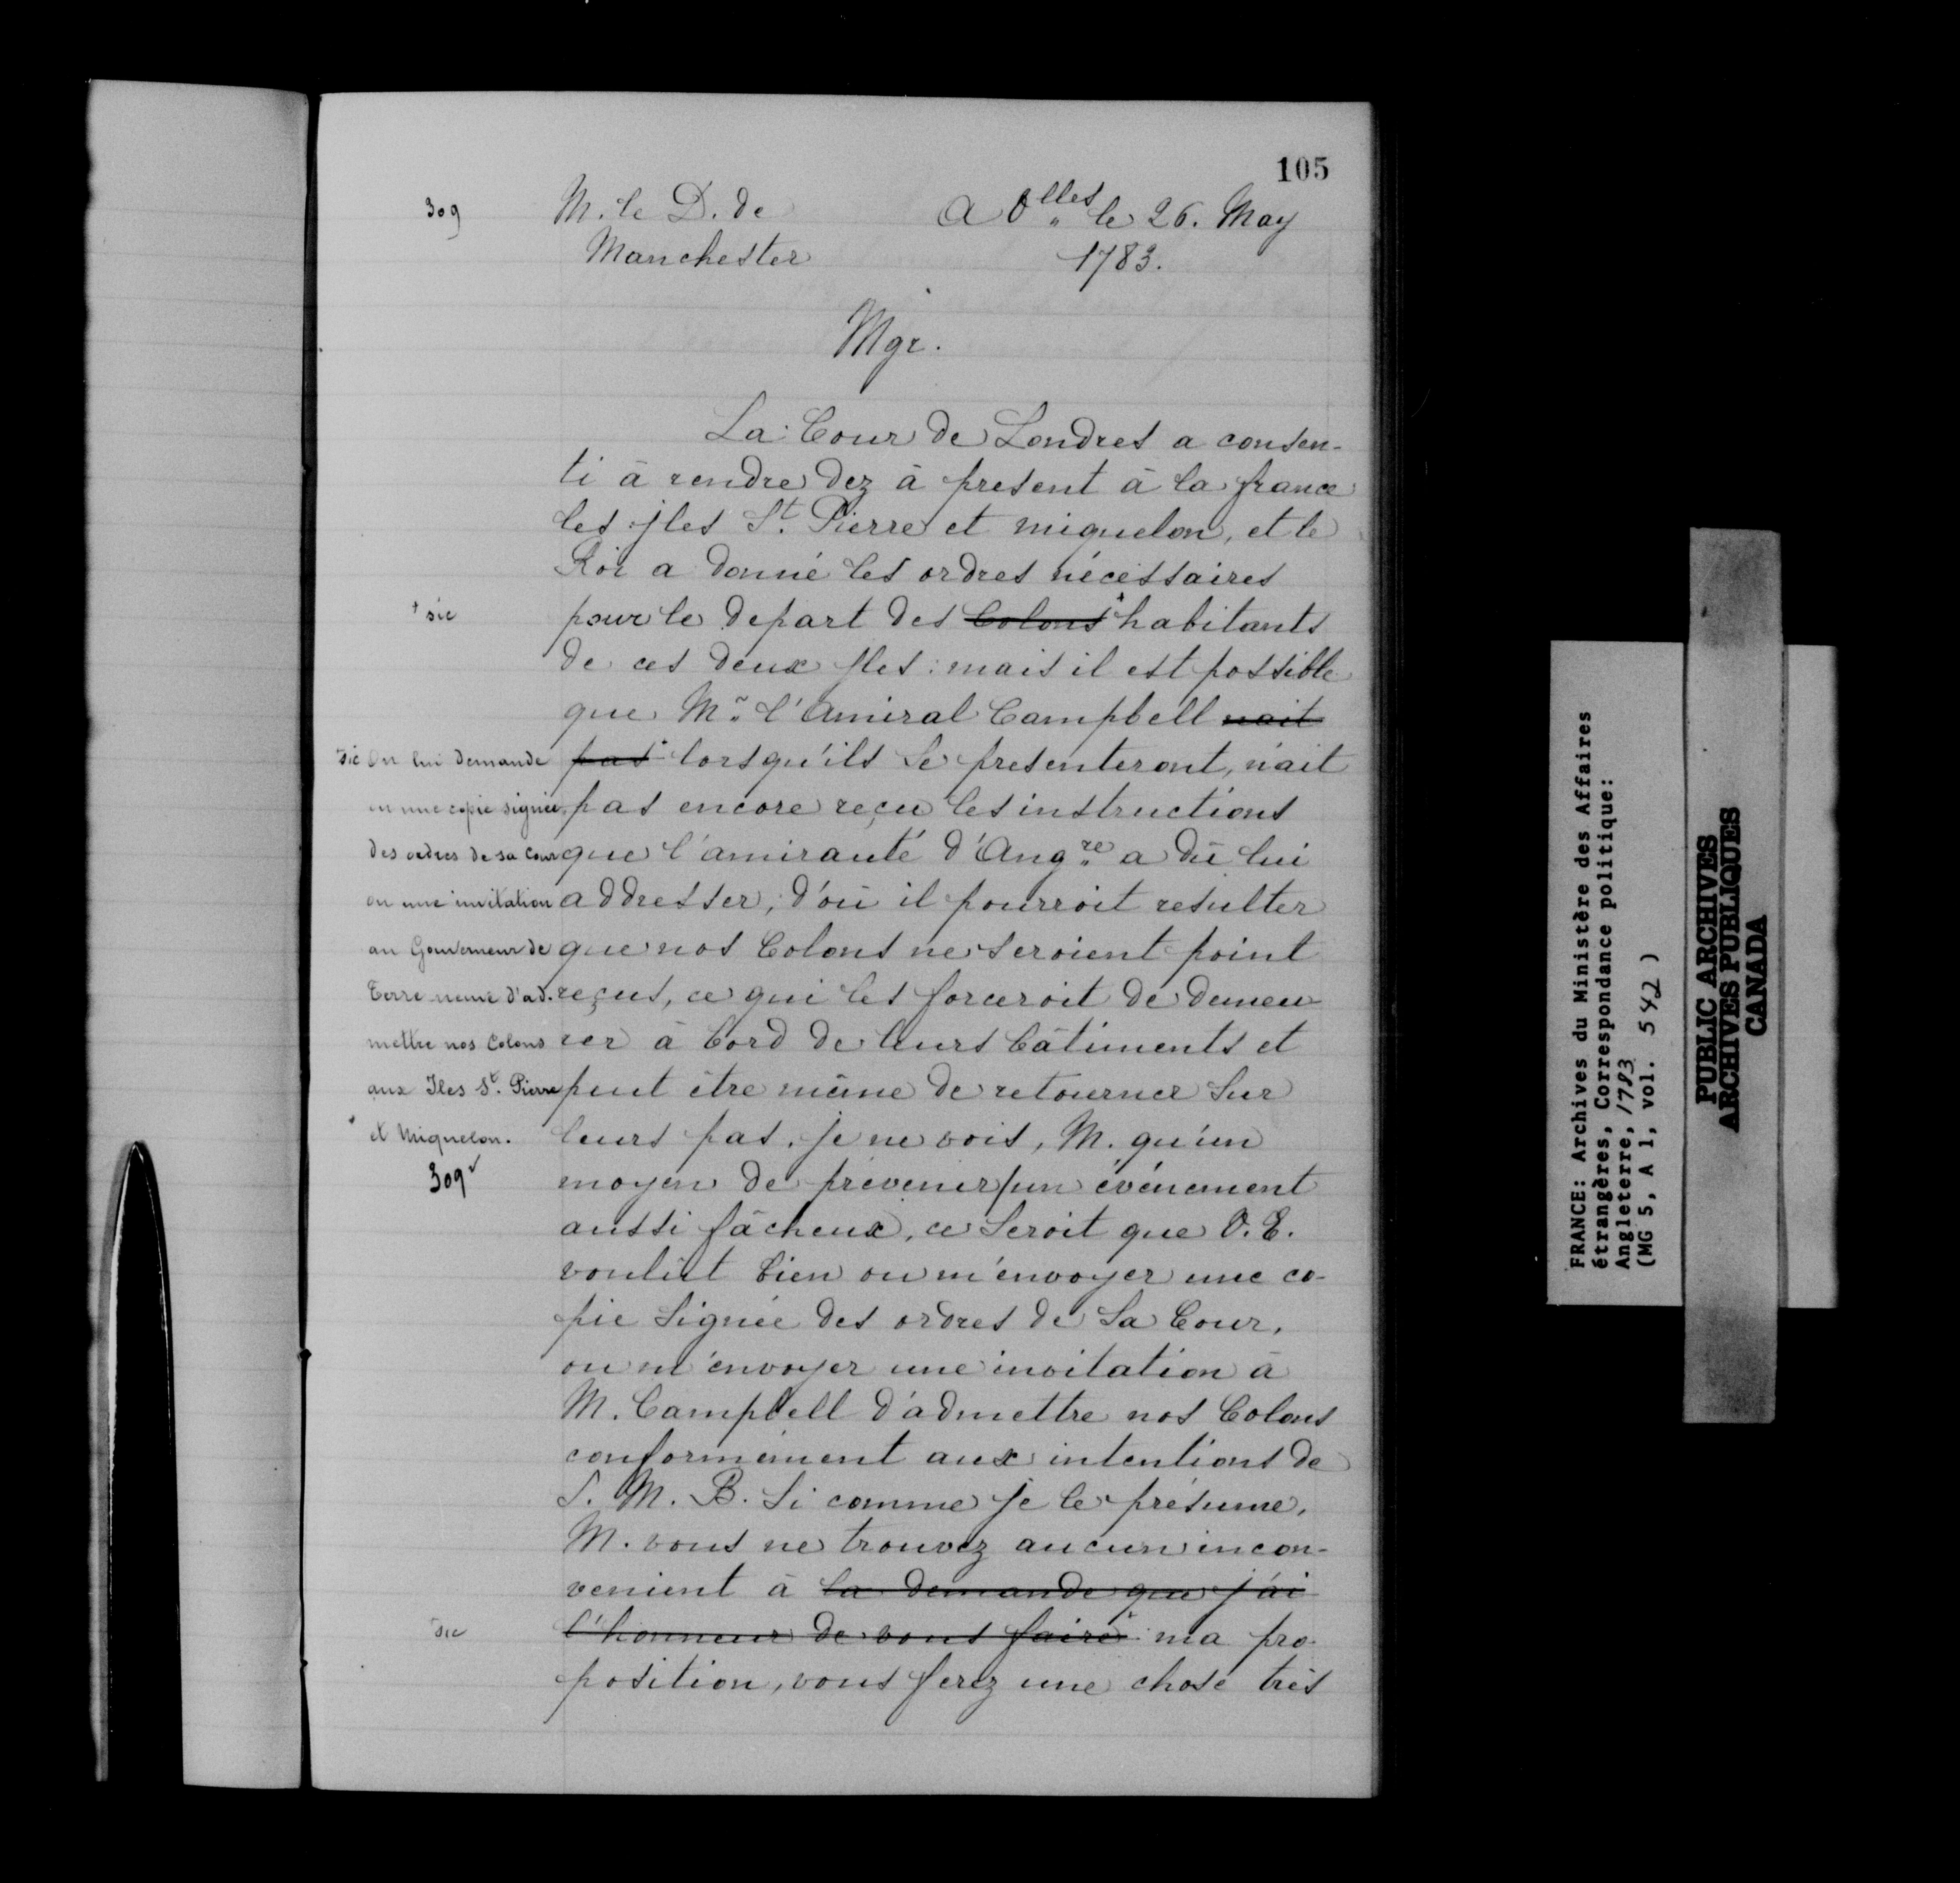 105
309
M. le D. de
Manchester
A Vlles le 26. May
1783.
Mgr.
La Cour de Londres a consen-
ti à rendre dez à present à la france
les jles St. Pierre et miquelon, et le
Roi a donné les ordres nécessaires
+ sic
pour le depart des Colons + habitants
de ces deux jles : mais il est possible
que Mr. l'Amiral Campbell nait
pas + lorsqu'ils se presenteront, n'ait
pas encore reçu les instructions
que l'amirauté d'Angre a dû lui
addresser, d'où il pourroit resulter
que nos Colons ne seroient point
reçus, ce qui les forceroit de demeu-
rer à bord de leurs bâtiments et
peut être même de retourner sur
leurs pas. je ne vois, M. qu'un
moyen de prévenir/un événement
aussi fâcheux, ce seroit que V. E.
voulût bien ou m'envoyer une co-
pie signée des ordres de Sa Cour,
ou m'envoyer une invitation à
M. Campbell d'admettre nos Colons
conformément aux intentions de
S. M. B. Si comme je le présume,
M. vous ne trouvez aucun incon-
venient à la demande que j'ai
l'honneur de vous faire + ma pro-
position, vous ferez une chose très
+ sic
On lui demande
ou une copie signée
des ordres de sa Cour
ou une invitation
au Gouverneur de
Terre neuve d'ad-
mettre nos Colons
aux Iles St. Pierre
et Miquelon.
309v
+ sic
FRANCE: Archives du Ministère des Affaires
étrangères, Correspondance politique:
Angleterre, 1783
(MG 5, A 1, vol. 542 )
PUBLIC ARCHIVES
ARCHIVES PUBLIQUES
CANADA